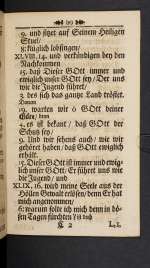 ( 19 )
9. und sitzet auf Seinem Heiligen
Stuel/
8: füglich lobsingen/
XLVIII. 14. und verkündigen bey den
Nachkommen
15. daß Dieser GOtt immer und
ewiglich unser GOtt sey/ Der uns
wie die Jugend führet/
3. des sich das gantze Land tröstet.
10. warten wir ô GOtt deiner
Güte/
4. es ist bekant/ daß GOtt der
Schutz sey/
9. Und wir sehens auch/ wie wir
gehöret haben/ daß GOtt ewiglich
erhält.
15. Dieser GOtt ist immer und ewig-
lich unser GOtt/ Er führet uns wie
die Jugend/ und
XLIX. 16. wird meine Seele aus der
Höllen Gewalt erlösen/ denn Er hat
mich angenommen/
6: warum solte ich mich denn in bö-
sen Tagen fürchten
K 2 L. 1.